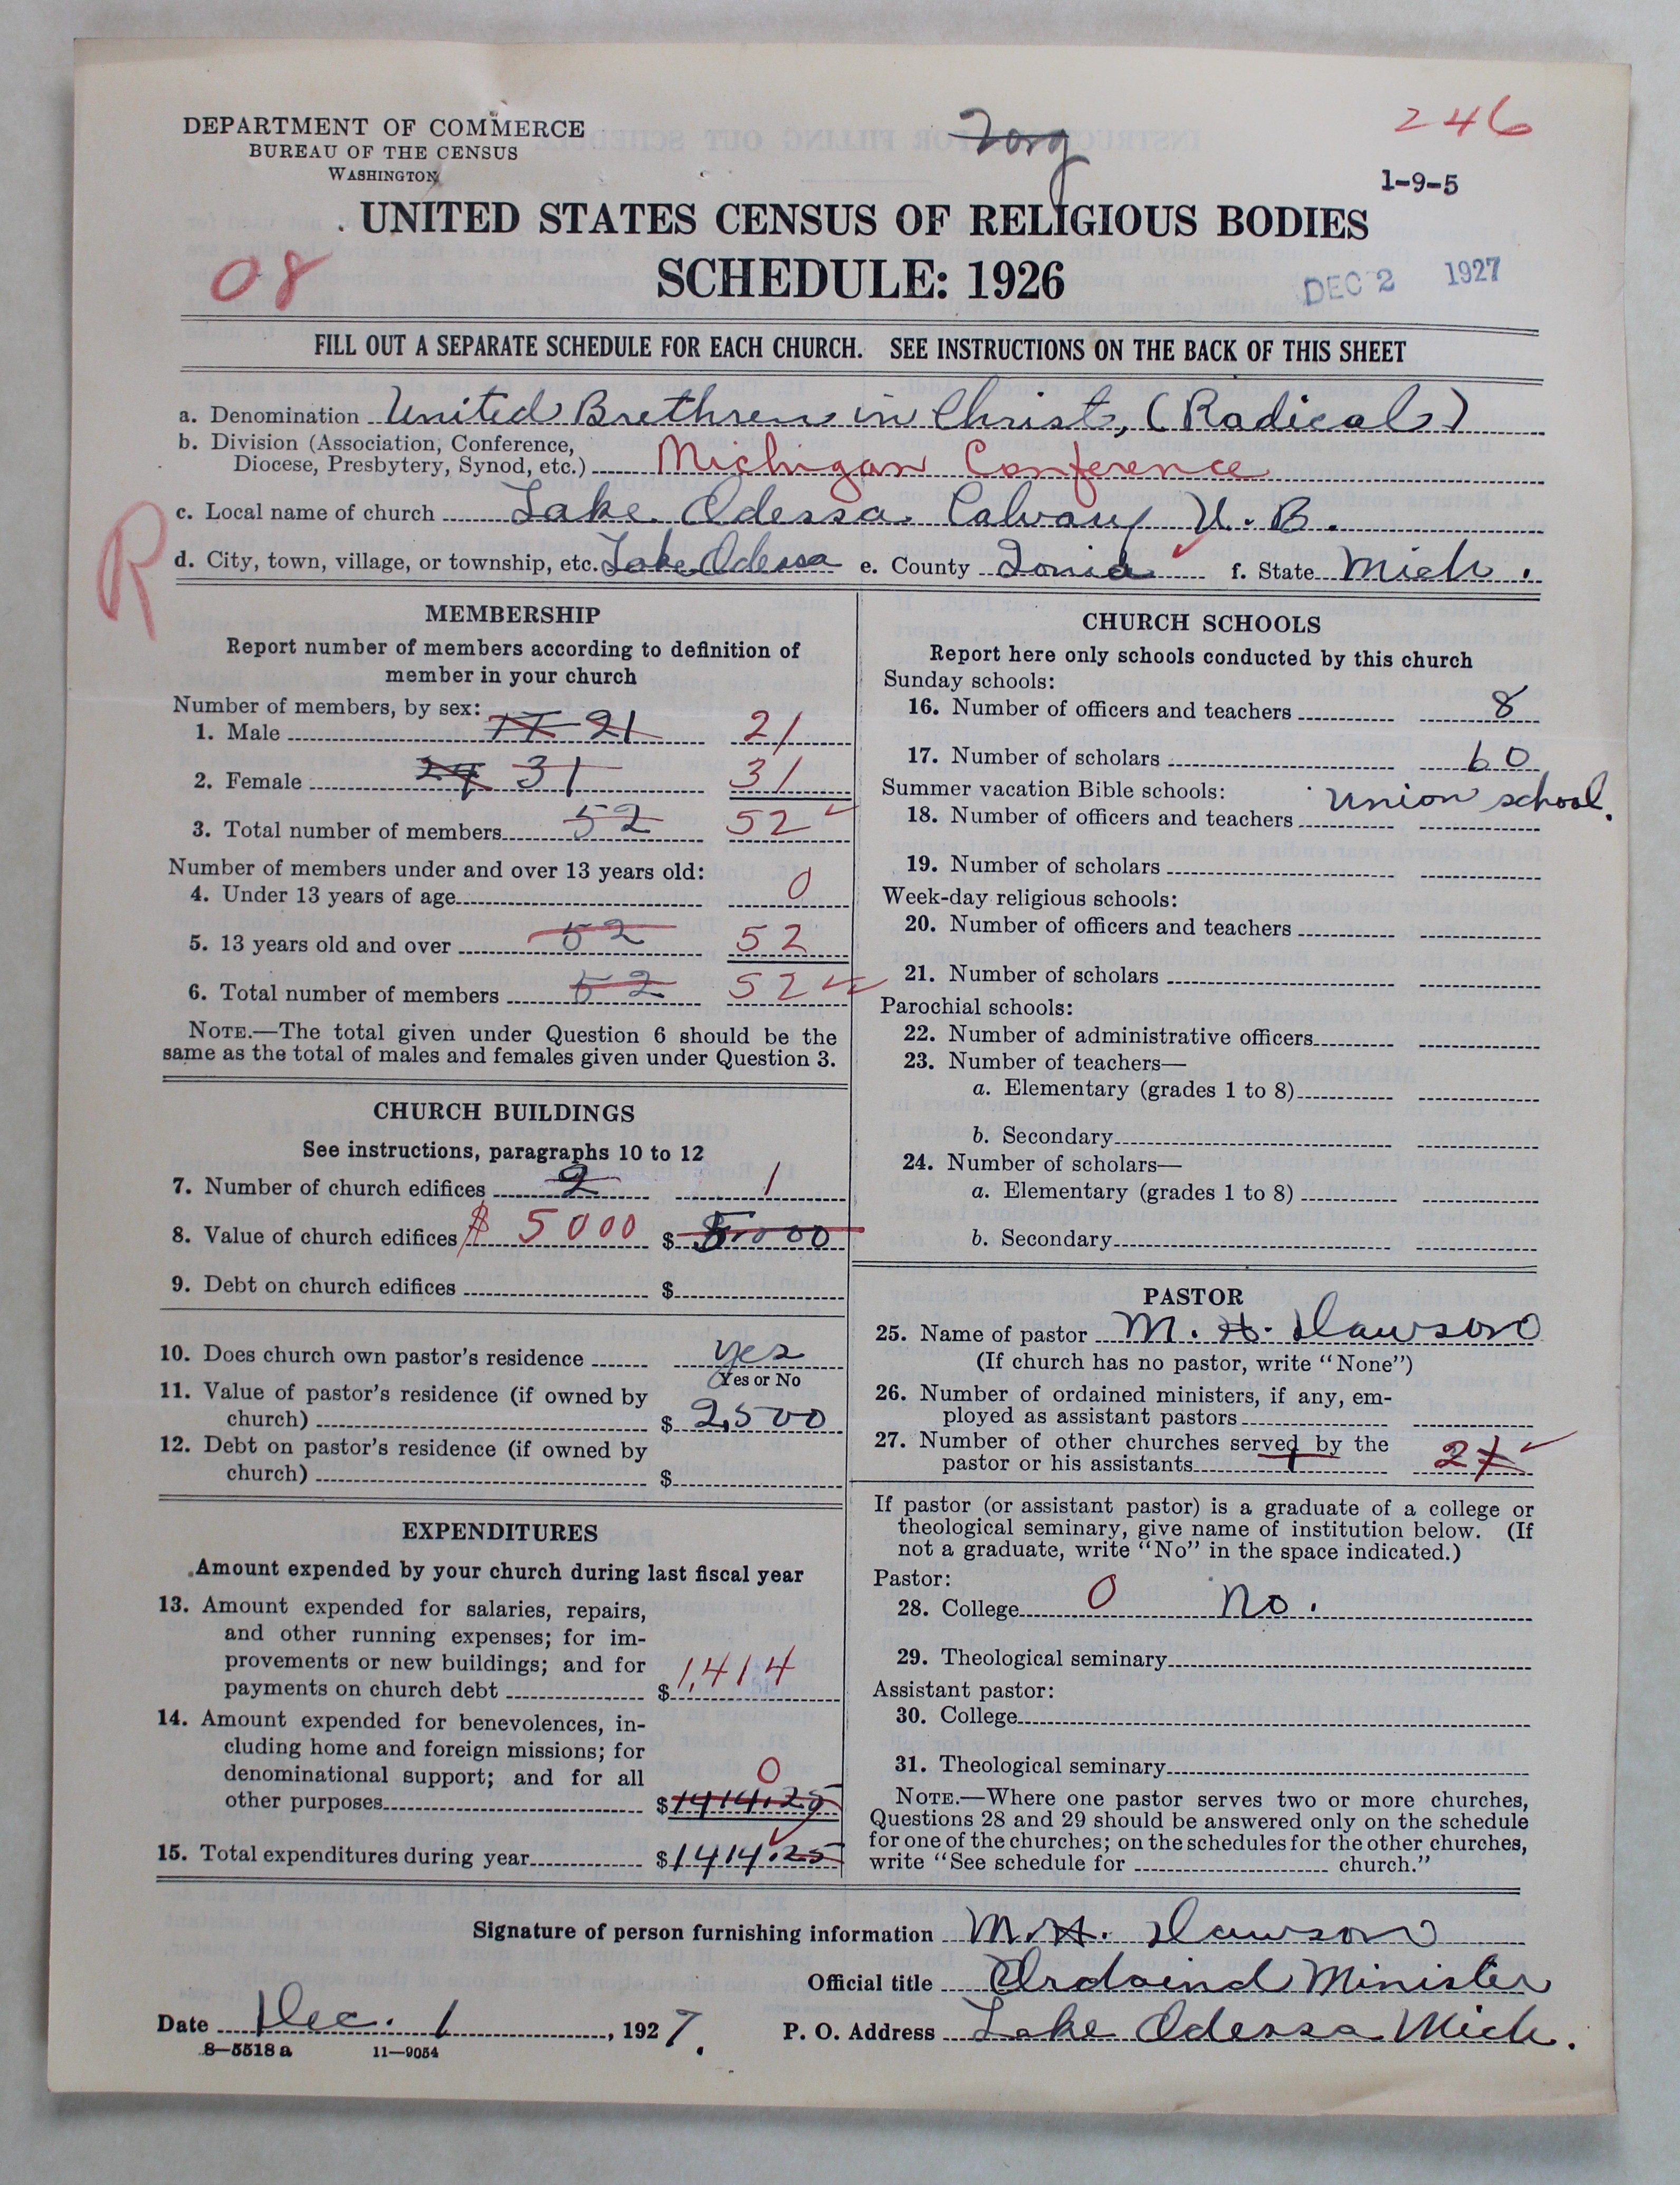 DEPARTMENT OF COMMERCE
BUREAU OF THE CENSUS
WASHINGTON
246
1-9-5
UNITED STATES CENSUS OF RELIGIOUS BODIES
08
SCHEDULE: 1926
DEC 2 1927
FILL OUT A SEPARATE SCHEDULE FOR EACH CHURCH. SEE INSTRUCTIONS ON THE BACK OF THIS SHEET
a. Denomination United Brethren in Christ, (Radical)
b. Division (Association, Conference,
Diocese, Presbytery, Synod, etc.) Michigan Conference
R
c. Local name of church Lake Odessa Calvary U. B.
d. City, town, village, or township, etc. Lake Odessa e. County Ionia f. State Mich.
MEMBERSHIP
Report number of members according to definition of
member in your church
Number of members, by sex:
1. Male 17 21 21
2. Female 24 31 31
3. Total number of members 52 52
Number of members under and over 13 years old:
4. Under 13 years of age 0
5. 13 years old and over 52 52
6. Total number of members 52 52
NOTE.—The total given under Question 6 should be the
same as the total of males and females given under Question 3.
CHURCH BUILDINGS
See instructions, paragraphs 10 to 12
7. Number of church edifices 2 1
8. Value of church edifices $ 5000 $ 5000
9. Debt on church edifices $
10. Does church own pastor's residence yes
Yes or No
11. Value of pastor's residence (if owned by
church) $ 2,500
12. Debt on pastor's residence (if owned by
church) $
EXPENDITURES
Amount expended by your church during last fiscal year
13. Amount expended for salaries, repairs,
and other running expenses; for im-
provements or new buildings; and for
payments on church debt $ 1,414
14. Amount expended for benevolences, in-
cluding home and foreign missions; for
denominational support; and for all 0
other purposes $ 1414.25
15. Total expenditures during year $ 1414.25
CHURCH SCHOOLS
Report here only schools conducted by this church
Sunday schools:
16. Number of officers and teachers 8
17. Number of scholars 60
Summer vacation Bible schools: Union school.
18. Number of officers and teachers
19. Number of scholars
Week-day religious schools:
20. Number of officers and teachers
21. Number of scholars
Parochial schools:
22. Number of administrative officers
23. Number of teachers—
a. Elementary (grades 1 to 8)
b. Secondary
24. Number of scholars—
a. Elementary (grades 1 to 8)
b. Secondary
PASTOR
25. Name of pastor M. H. Dawson
(If church has no pastor, write "None")
26. Number of ordained ministers, if any, em-
ployed as assistant pastors
27. Number of other churches served by the
pastor or his assistants 1 2
If pastor (or assistant pastor) is a graduate of a college or
theological seminary, give name of institution below. (If
not a graduate, write "No" in the space indicated.)
Pastor:
28. College 0 No.
29. Theological seminary
Assistant pastor:
30. College
31. Theological seminary
NOTE.—Where one pastor serves two or more churches,
Questions 28 and 29 should be answered only on the schedule
for one of the churches; on the schedules for the other churches,
write "See schedule for church."
Signature of person furnishing information M. H. Dawson
Official title Ordaind Minister
Date Dec. 1, 1927. P. O. Address Lake Odessa Mich.
8-5518 a 11-9054